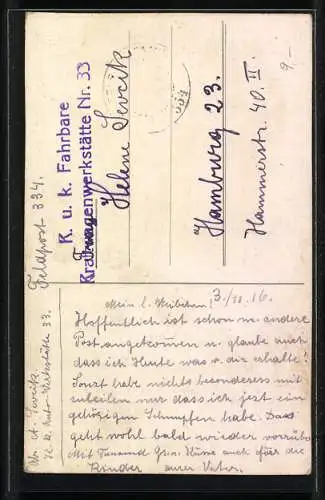 K. u. k. Fahrbare
Kraftwagenwerkstätte Nr. 33
Helene Sevcik
Hamburg 23.
Hammerstr. 40. II.
9.-
334
Feldpost 334.
K. u. k. Auto-Werkstätte 33.
3./II. 16.
Mein l. Weibchen!
Hoffentlich ist schon m. andere
Post angekommen u. glaube auch
dass ich Heute was v. dir erhalte!
Sonst habe nichts besonderess mit-
zuteilen nur dass ich jezt ein
Schnupfen habe. Dass
geht wohl bald wieder vorrüber
Mit Tausend Grü. Küsse auch für die
Kinder eurer Vater.